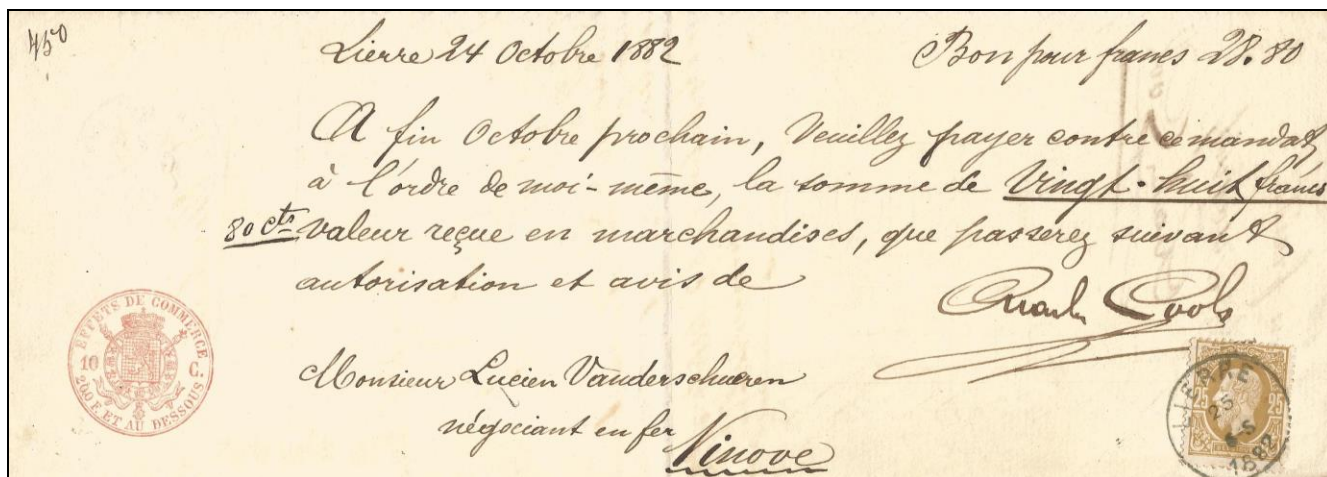 450
Lierre 24 Octobre 1882 Bon pour francs 28.80
A fin Octobre prochain, Veuillez payer contre ce mandat,
à l'ordre de moi-même, la somme de Vingt-huit francs
80 cts valeur reçue en marchandises, que passerez suivant
autorisation et avis de
Cools
EFFETS DE COMMERCE
10 C.
200 F. ET AU DESSOUS.
Monsieur Lucien Vanderschueren
négociant en fer
Ninove
LIERRE
25
6-S
1882
25 25